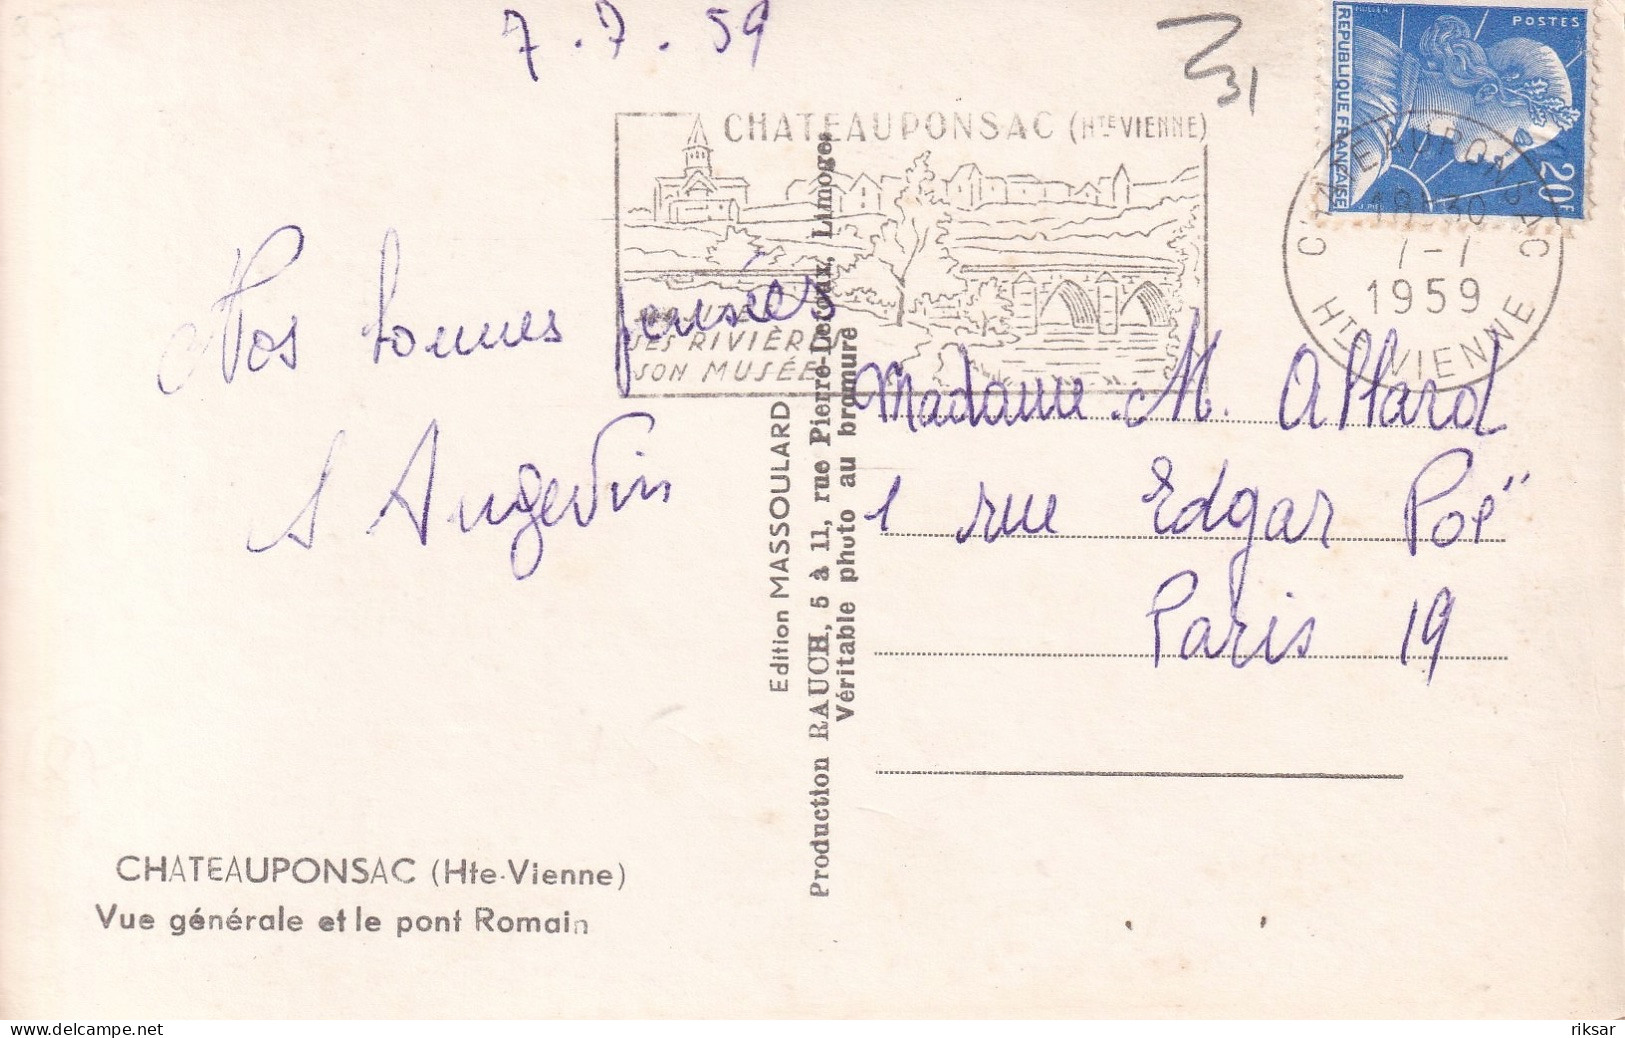 7.7.59
31
POSTES
REPUBLIQUE FRANÇAISE
20F
CHATEAUPONSAC (HTE VIENNE)
SES RIVIÈRES
SON MUSÉE
CHATEAUPONSAC
18H30
7-7
1959
HTE VIENNE
Nos bonnes pensées
A Angevin
Madame M. Allard
1 rue Edgar Poë
Paris 19
Edition MASSOULARD
Production RAUCH, 5 à 11, rue Pierre-Dufour, Limoges
Véritable photo au bromure
CHATEAUPONSAC (Hte-Vienne)
Vue générale et le pont Romain
riksar